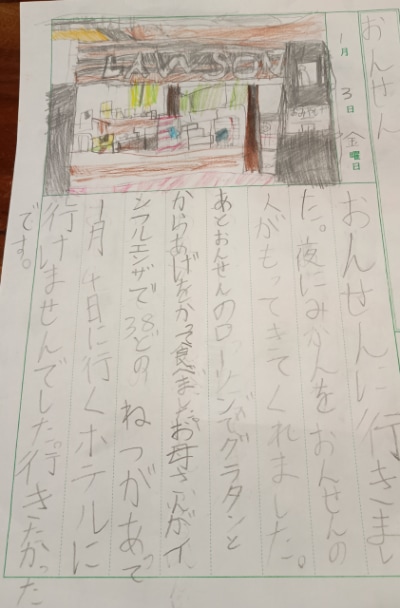 おんせん
1月
3日
金曜日
LAWSON
おんせんに行きまし
た。夜にみかんをおんせんの
人がもってきてくれました。
あとおんせんのローソンでグラタンと
からあげをかって食べましたお母さんがイ
ンフルエンザで38どの ねつがあって
1月4日に行くホテルに
行けませんでした。行きたかった
です。